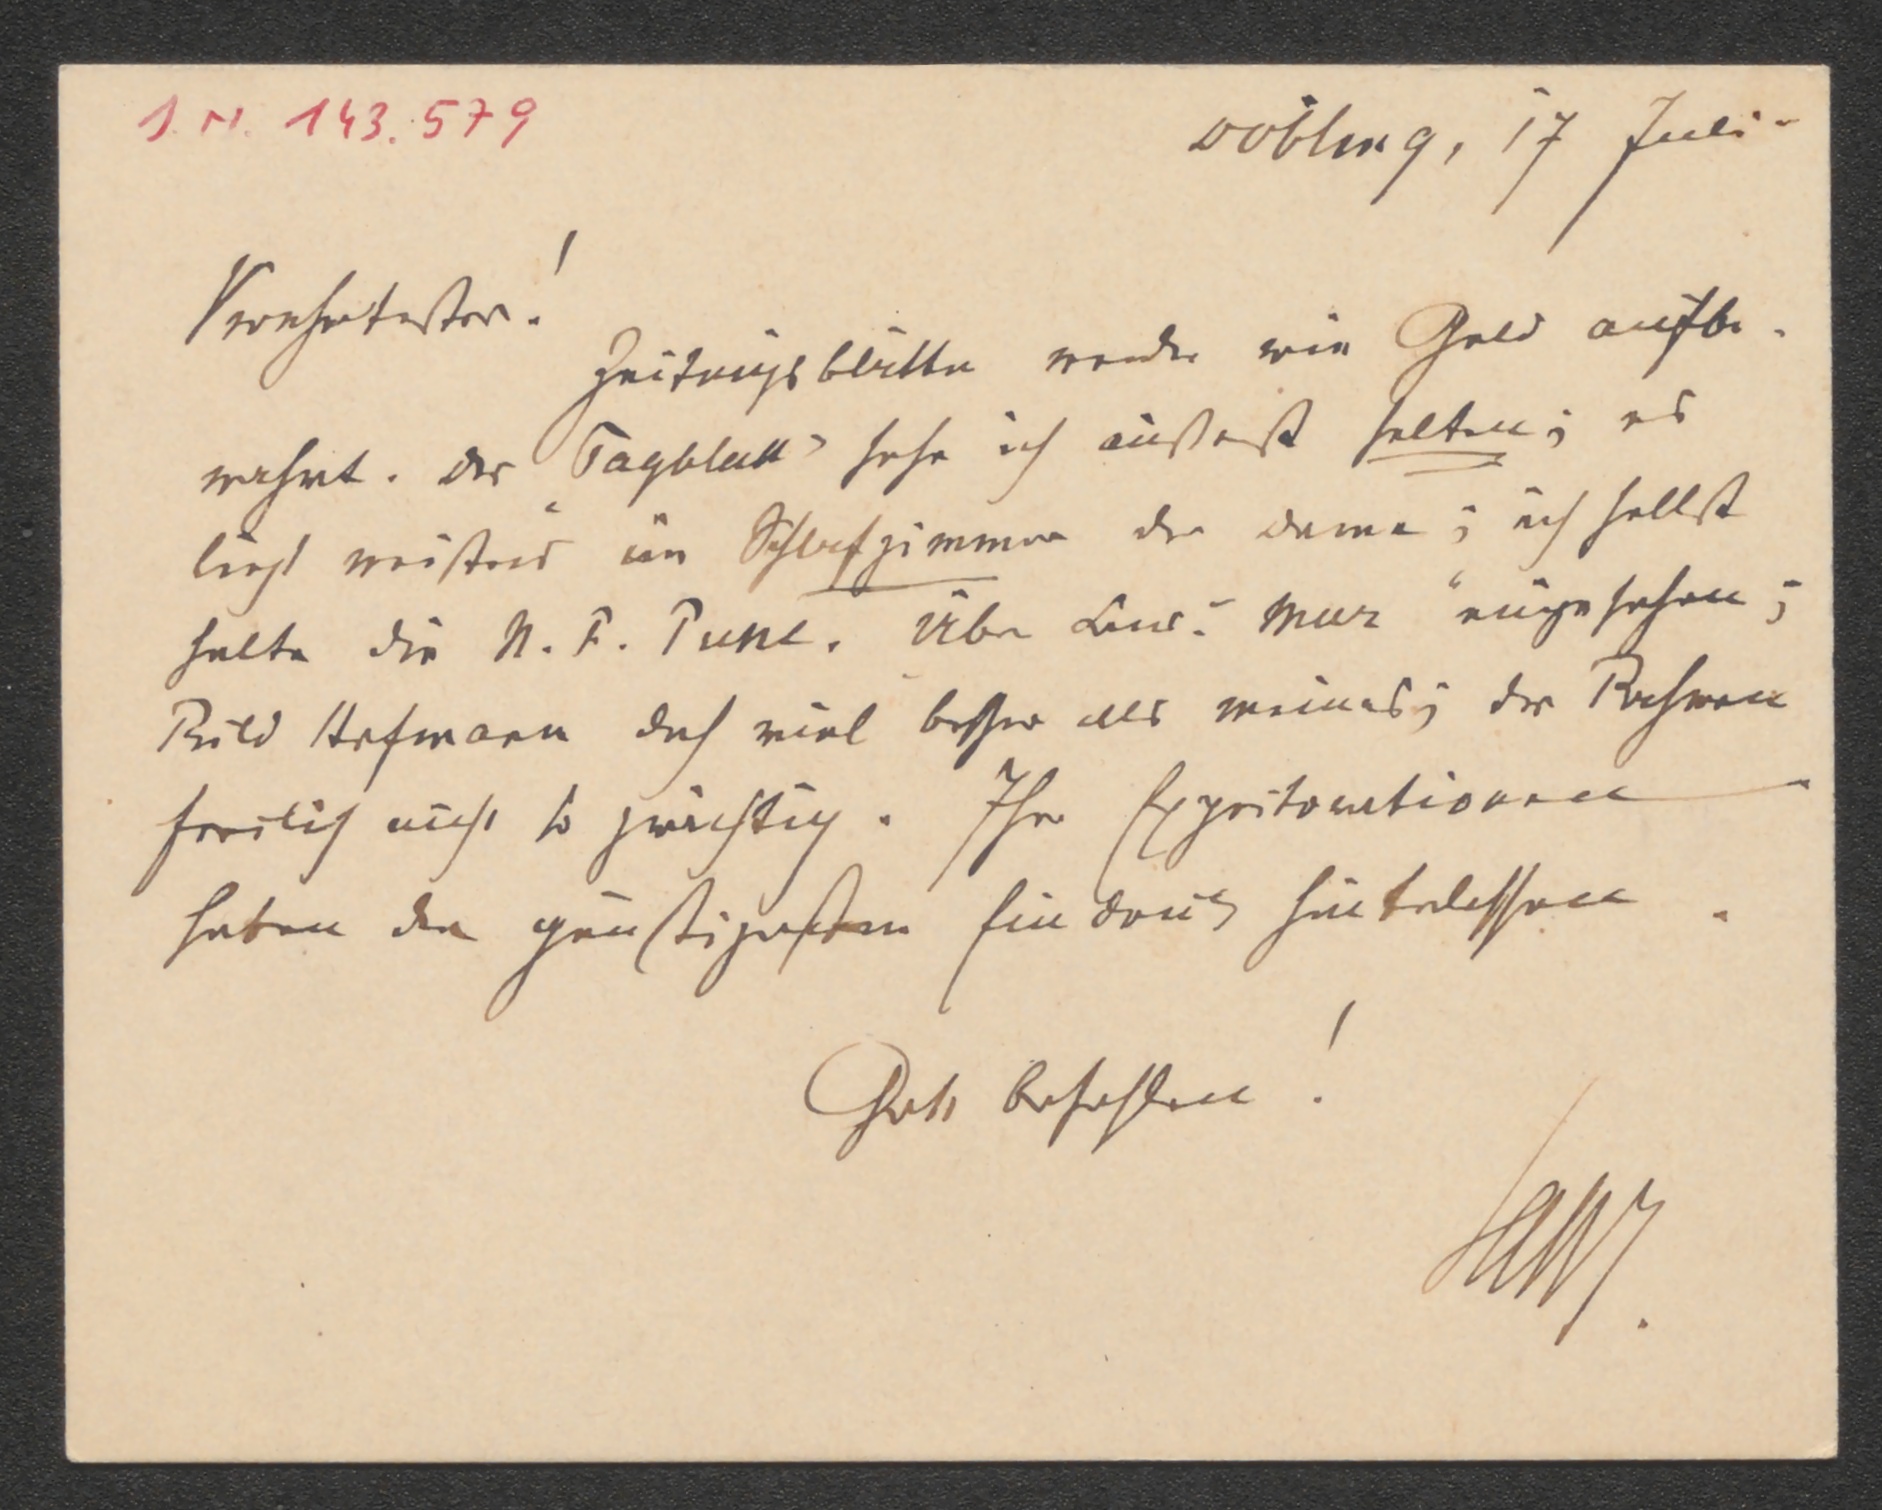 J. N. 143.579
Döbling, 17 Juli
Verehrtester!
Zeitungsblätter werden wie Geld aufbe-
wahrt. Das "Tagblatt" sehe ich äußerst selten; es
liegt meistens im Schlafzimmer der Dame; ich selbst
halte die N. F. Presse. Über "eingesehen;
Bild Hofmann doch viel besser als meines; der Rahmen
freilich nicht so prächtig. Ihre Expectorationen
haben den günstigsten Eindruck hinterlassen.
Gott befohlen!